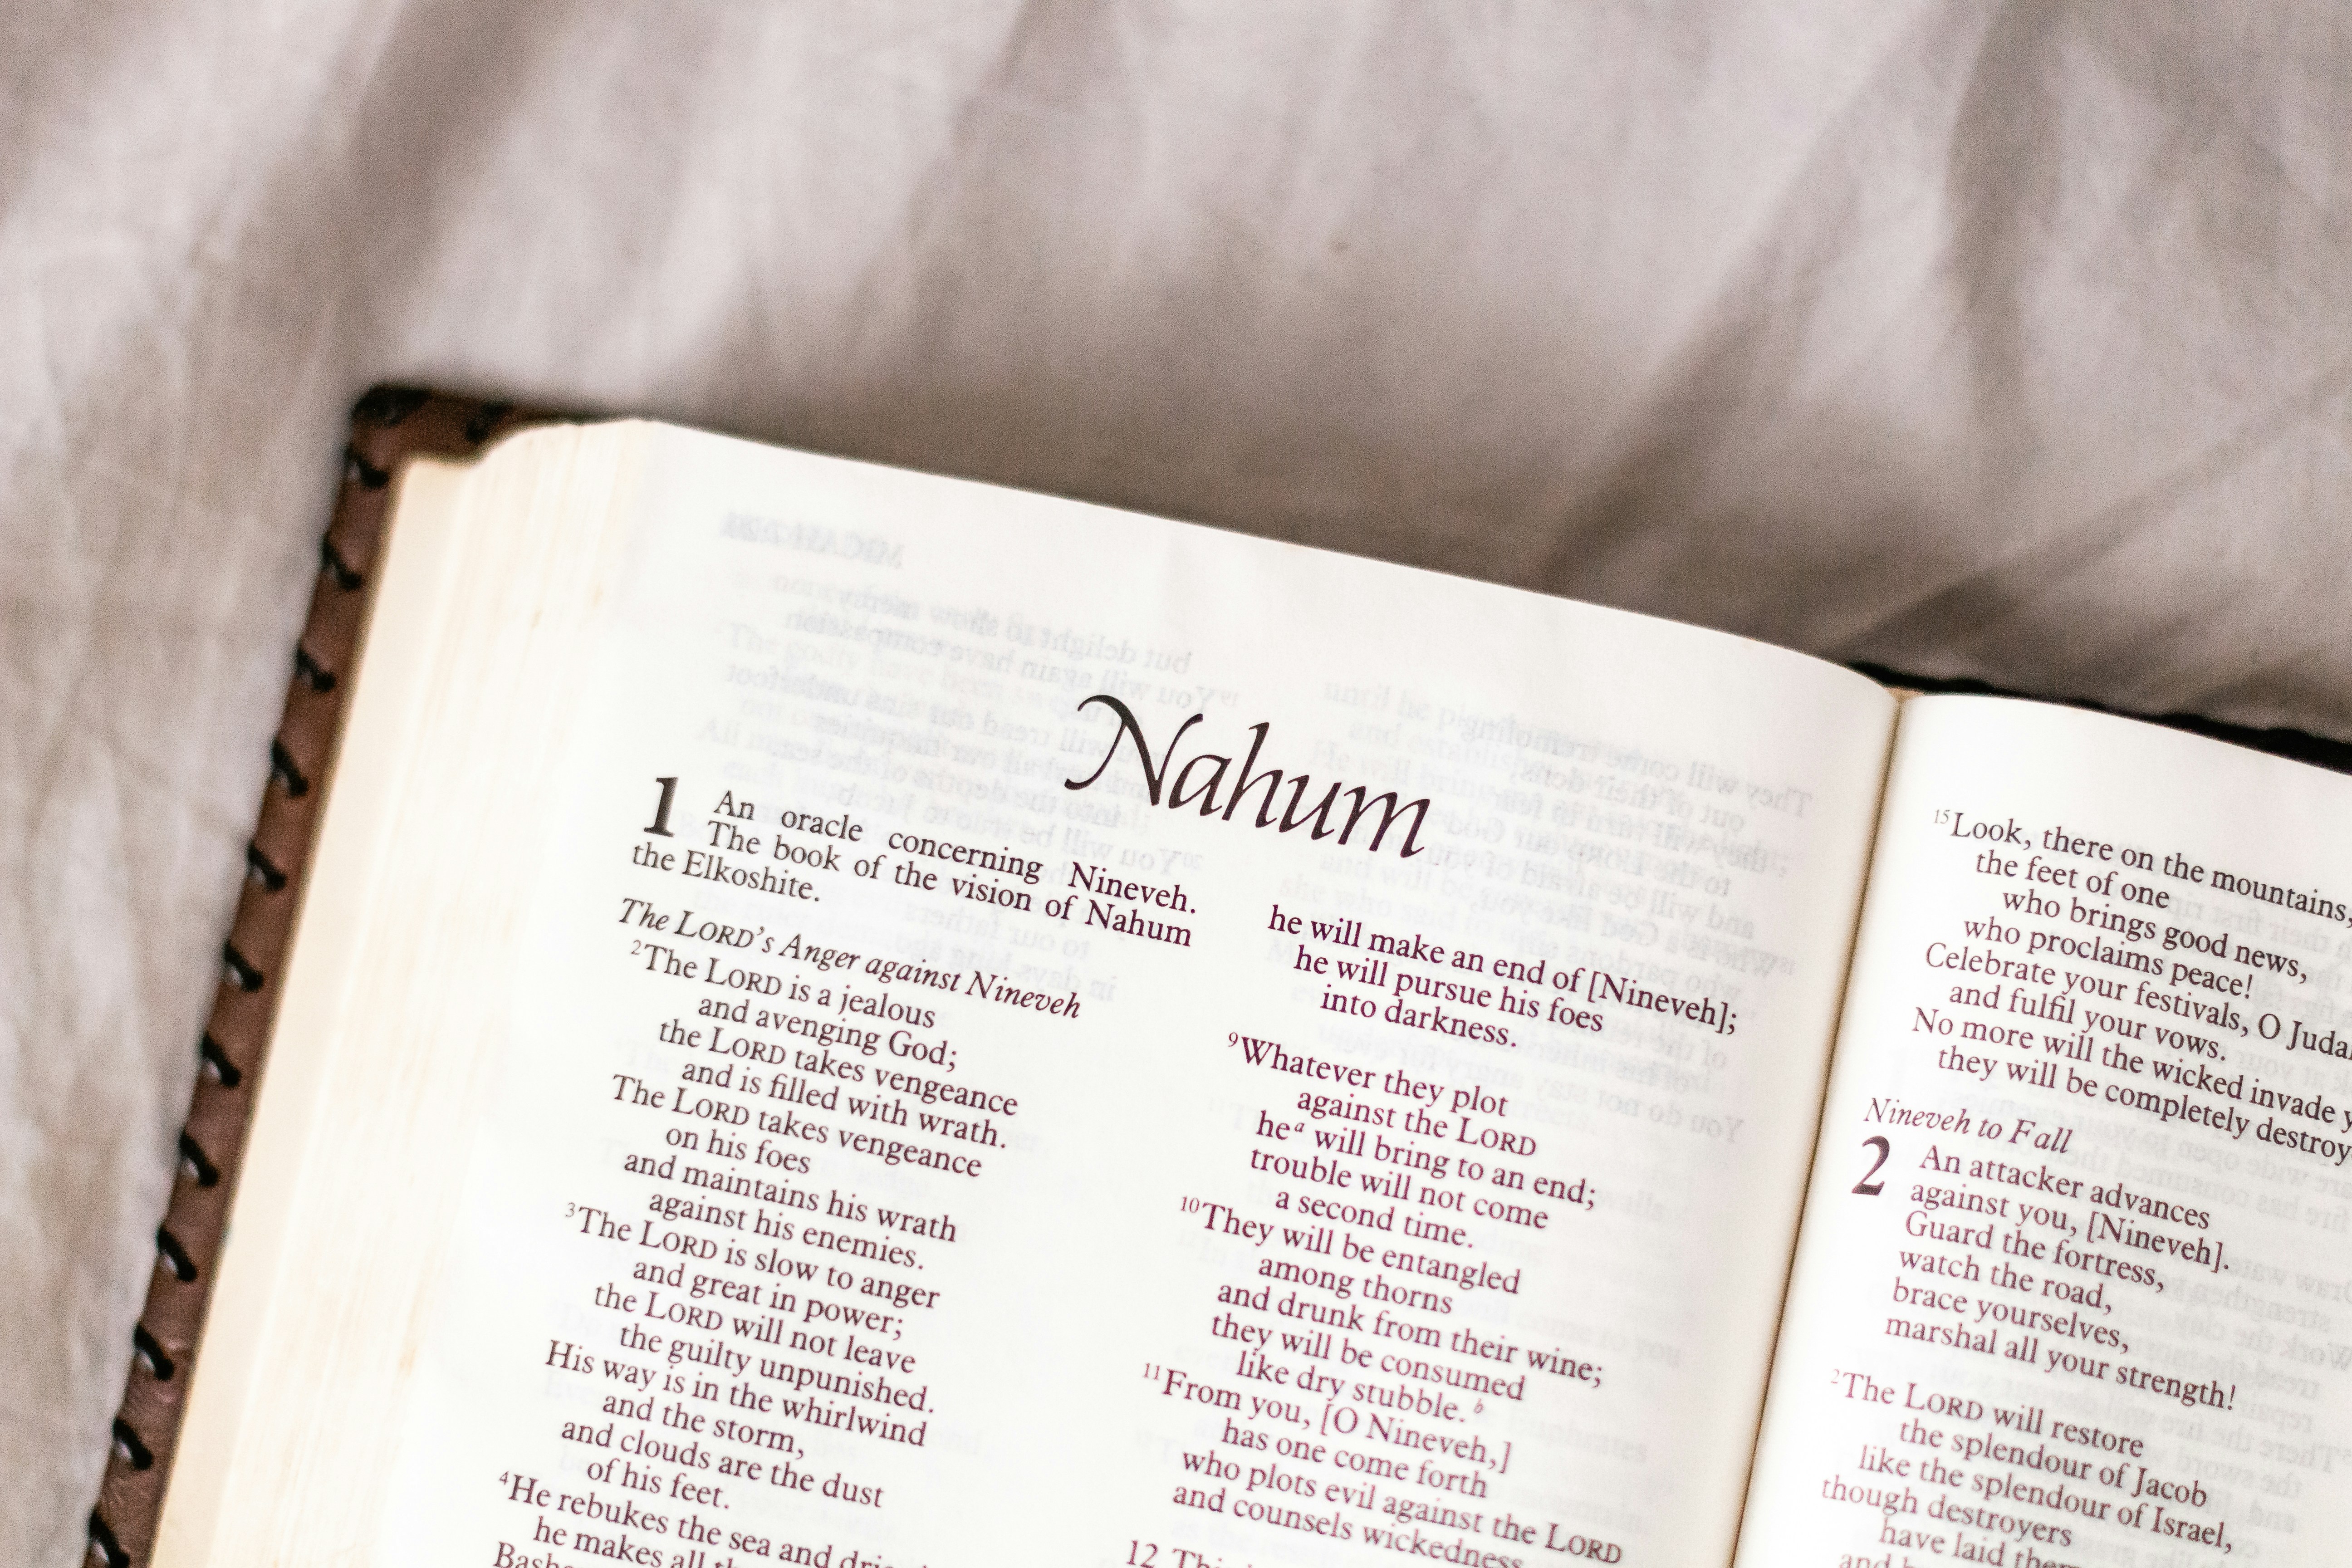 Nahum
1 An oracle concerning Nineveh.
The book of the vision of Nahum
the Elkoshite.
The LORD's Anger against Nineveh
2The LORD is a jealous
and avenging God;
the LORD takes vengeance
and is filled with wrath.
The LORD takes vengeance
on his foes
and maintains his wrath
against his enemies.
3The LORD is slow to anger
and great in power;
the LORD will not leave
the guilty unpunished.
His way is in the whirlwind
and the storm,
and clouds are the dust
of his feet.
4He rebukes the sea and
he makes all
he will make an end of [Nineveh];
he will pursue his foes
into darkness.
9Whatever they plot
against the LORD
he a will bring to an end;
trouble will not come
a second time.
10They will be entangled
among thorns
and drunk from their wine;
they will be consumed
like dry stubble. b
11From you, [O Nineveh,]
has one come forth
who plots evil against the LORD
and counsels wickedness
12
15Look, there on the mountains,
the feet of one
who brings good news,
who proclaims peace!
Celebrate your festivals, O
and fulfil your vows.
No more will the wicked invade
they will be completely
Nineveh to Fall
2 An attacker advances
against you, [Nineveh].
Guard the fortress,
watch the road,
brace yourselves,
marshal all your strength!
2The LORD will restore
the splendour of Jacob
like the splendour of Israel,
though destroyers
have laid
and